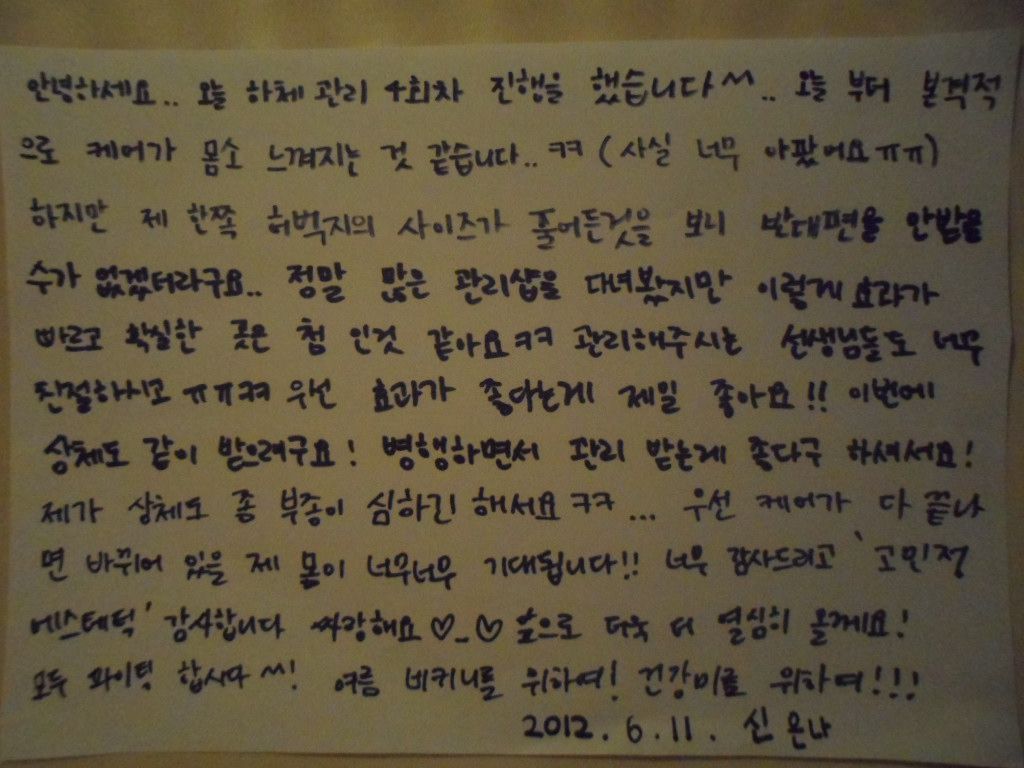 안녕하세요.. 오늘 하체 관리 4회차 진행을 했습니다^^.. 오늘 부터 본격적
으로 케어가 몸소 느껴지는 것 같습니다.. ㅋㅋ (사실 너무 아팠어요ㅠㅠ)
하지만 제 한쪽 허벅지의 사이즈가 줄어든것을 보니 반대편을 안받을
수가 없겠더라구요.. 정말 많은 관리샵을 다녀봤지만 이렇게 효과가
빠르고 확실한 곳은 첨 인것 같아요ㅋㅋ 관리해주시는 선생님들도 너무
친절하시고 ㅠㅠㅋㅋ 우선 효과가 좋다는게 제일 좋아요!! 이번에
상체도 같이 받으려구요! 병행하면서 관리 받는게 좋다구 하셔서요!
제가 상체도 좀 부종이 심하긴 해서요ㅋㅋ... 우선 케어가 다 끝나
면 바뀌어 있을 제 몸이 너무너무 기대됩니다!! 너무 감사드리고 '고민정
에스테틱' 감사합니다 싸랑해요♡_♡ 앞으로 더욱 더 열심히 올께요!
모두 화이팅 합시다^^! 여름 비키니를 위하여! 건강미를 위하여!!!
2012. 6. 11. 신은나